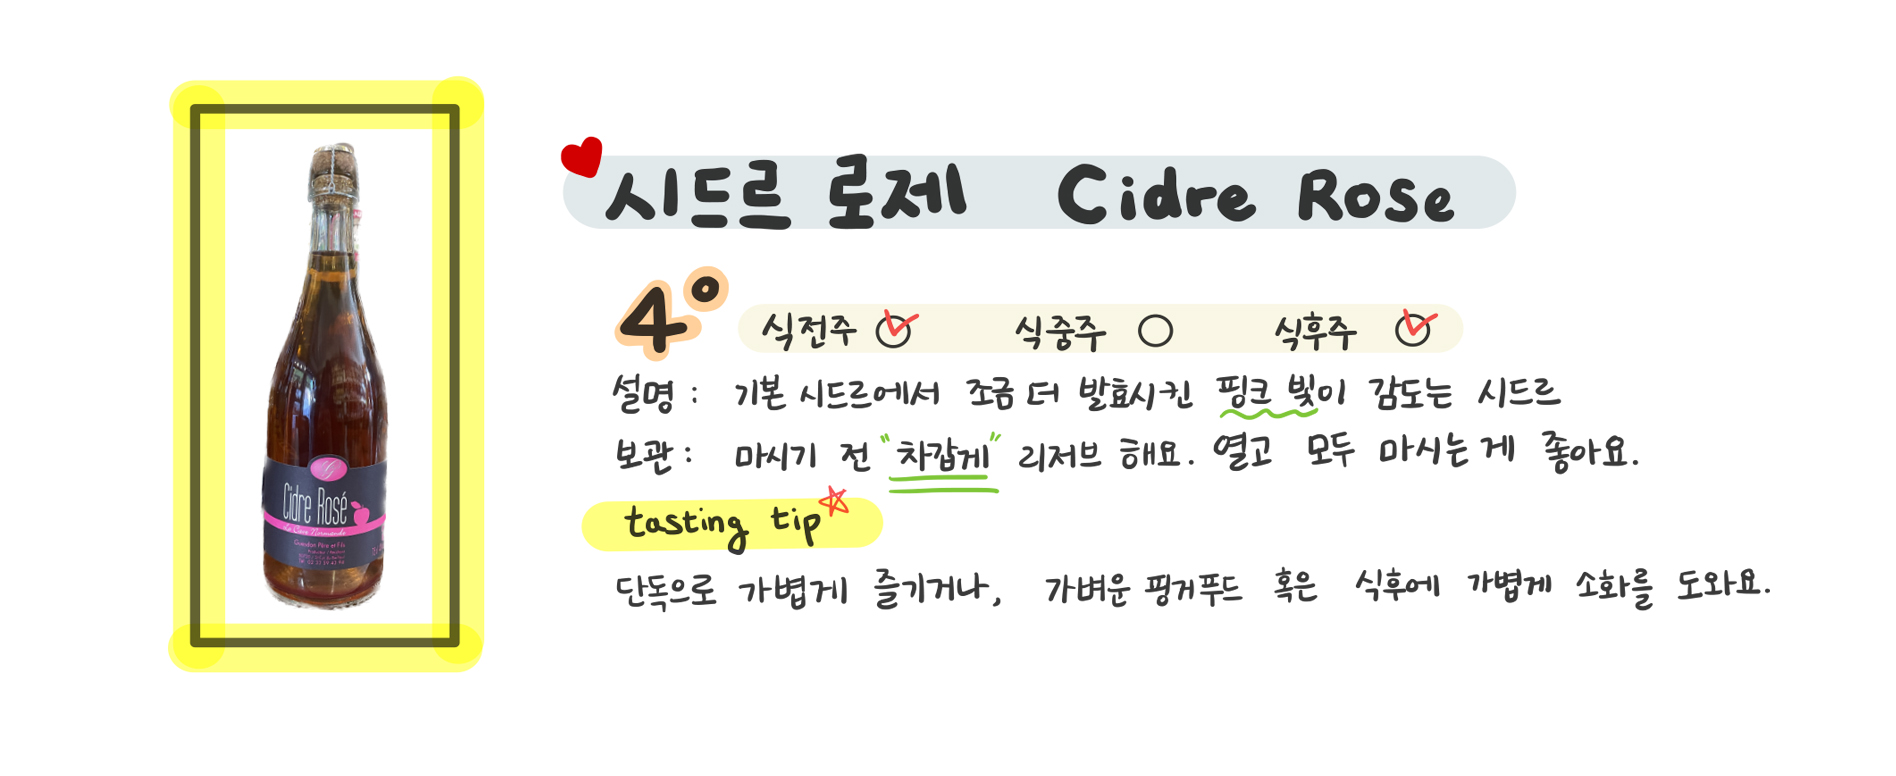 시드르 로제 Cidre Rose
4°
식전주 식중주 식후주
설명 : 기본 시드르에서 조금 더 발효시킨 핑크 빛이 감도는 시드르
보관 : 마시기 전 "차갑게" 리저브 해요. 열고 모두 마시는 게 좋아요.
tasting tip
단독으로 가볍게 즐기거나, 가벼운 핑거푸드 혹은 식후에 가볍게 소화를 도와요.
Cidre Rosé
La Cave Normande